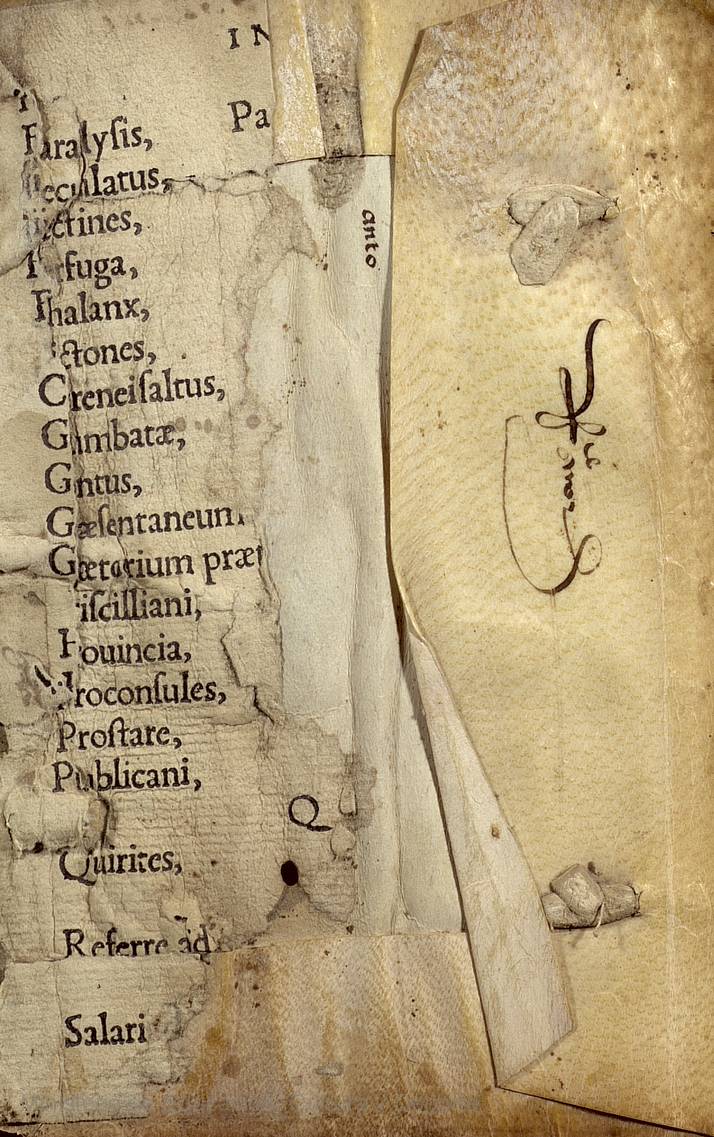 IN
Pa
Paralyſis,
Peculatus,
ctines,
fuga,
Phalanx,
ctones,
Creneiſaltus,
Gambatæ,
Gntus,
Gæſentaneum
Gætorium præt
iſcilliani,
Prouincia,
Proconſules,
Proſtare,
Publicani,
Q
Quirites,
Referre ad
Salari
anto